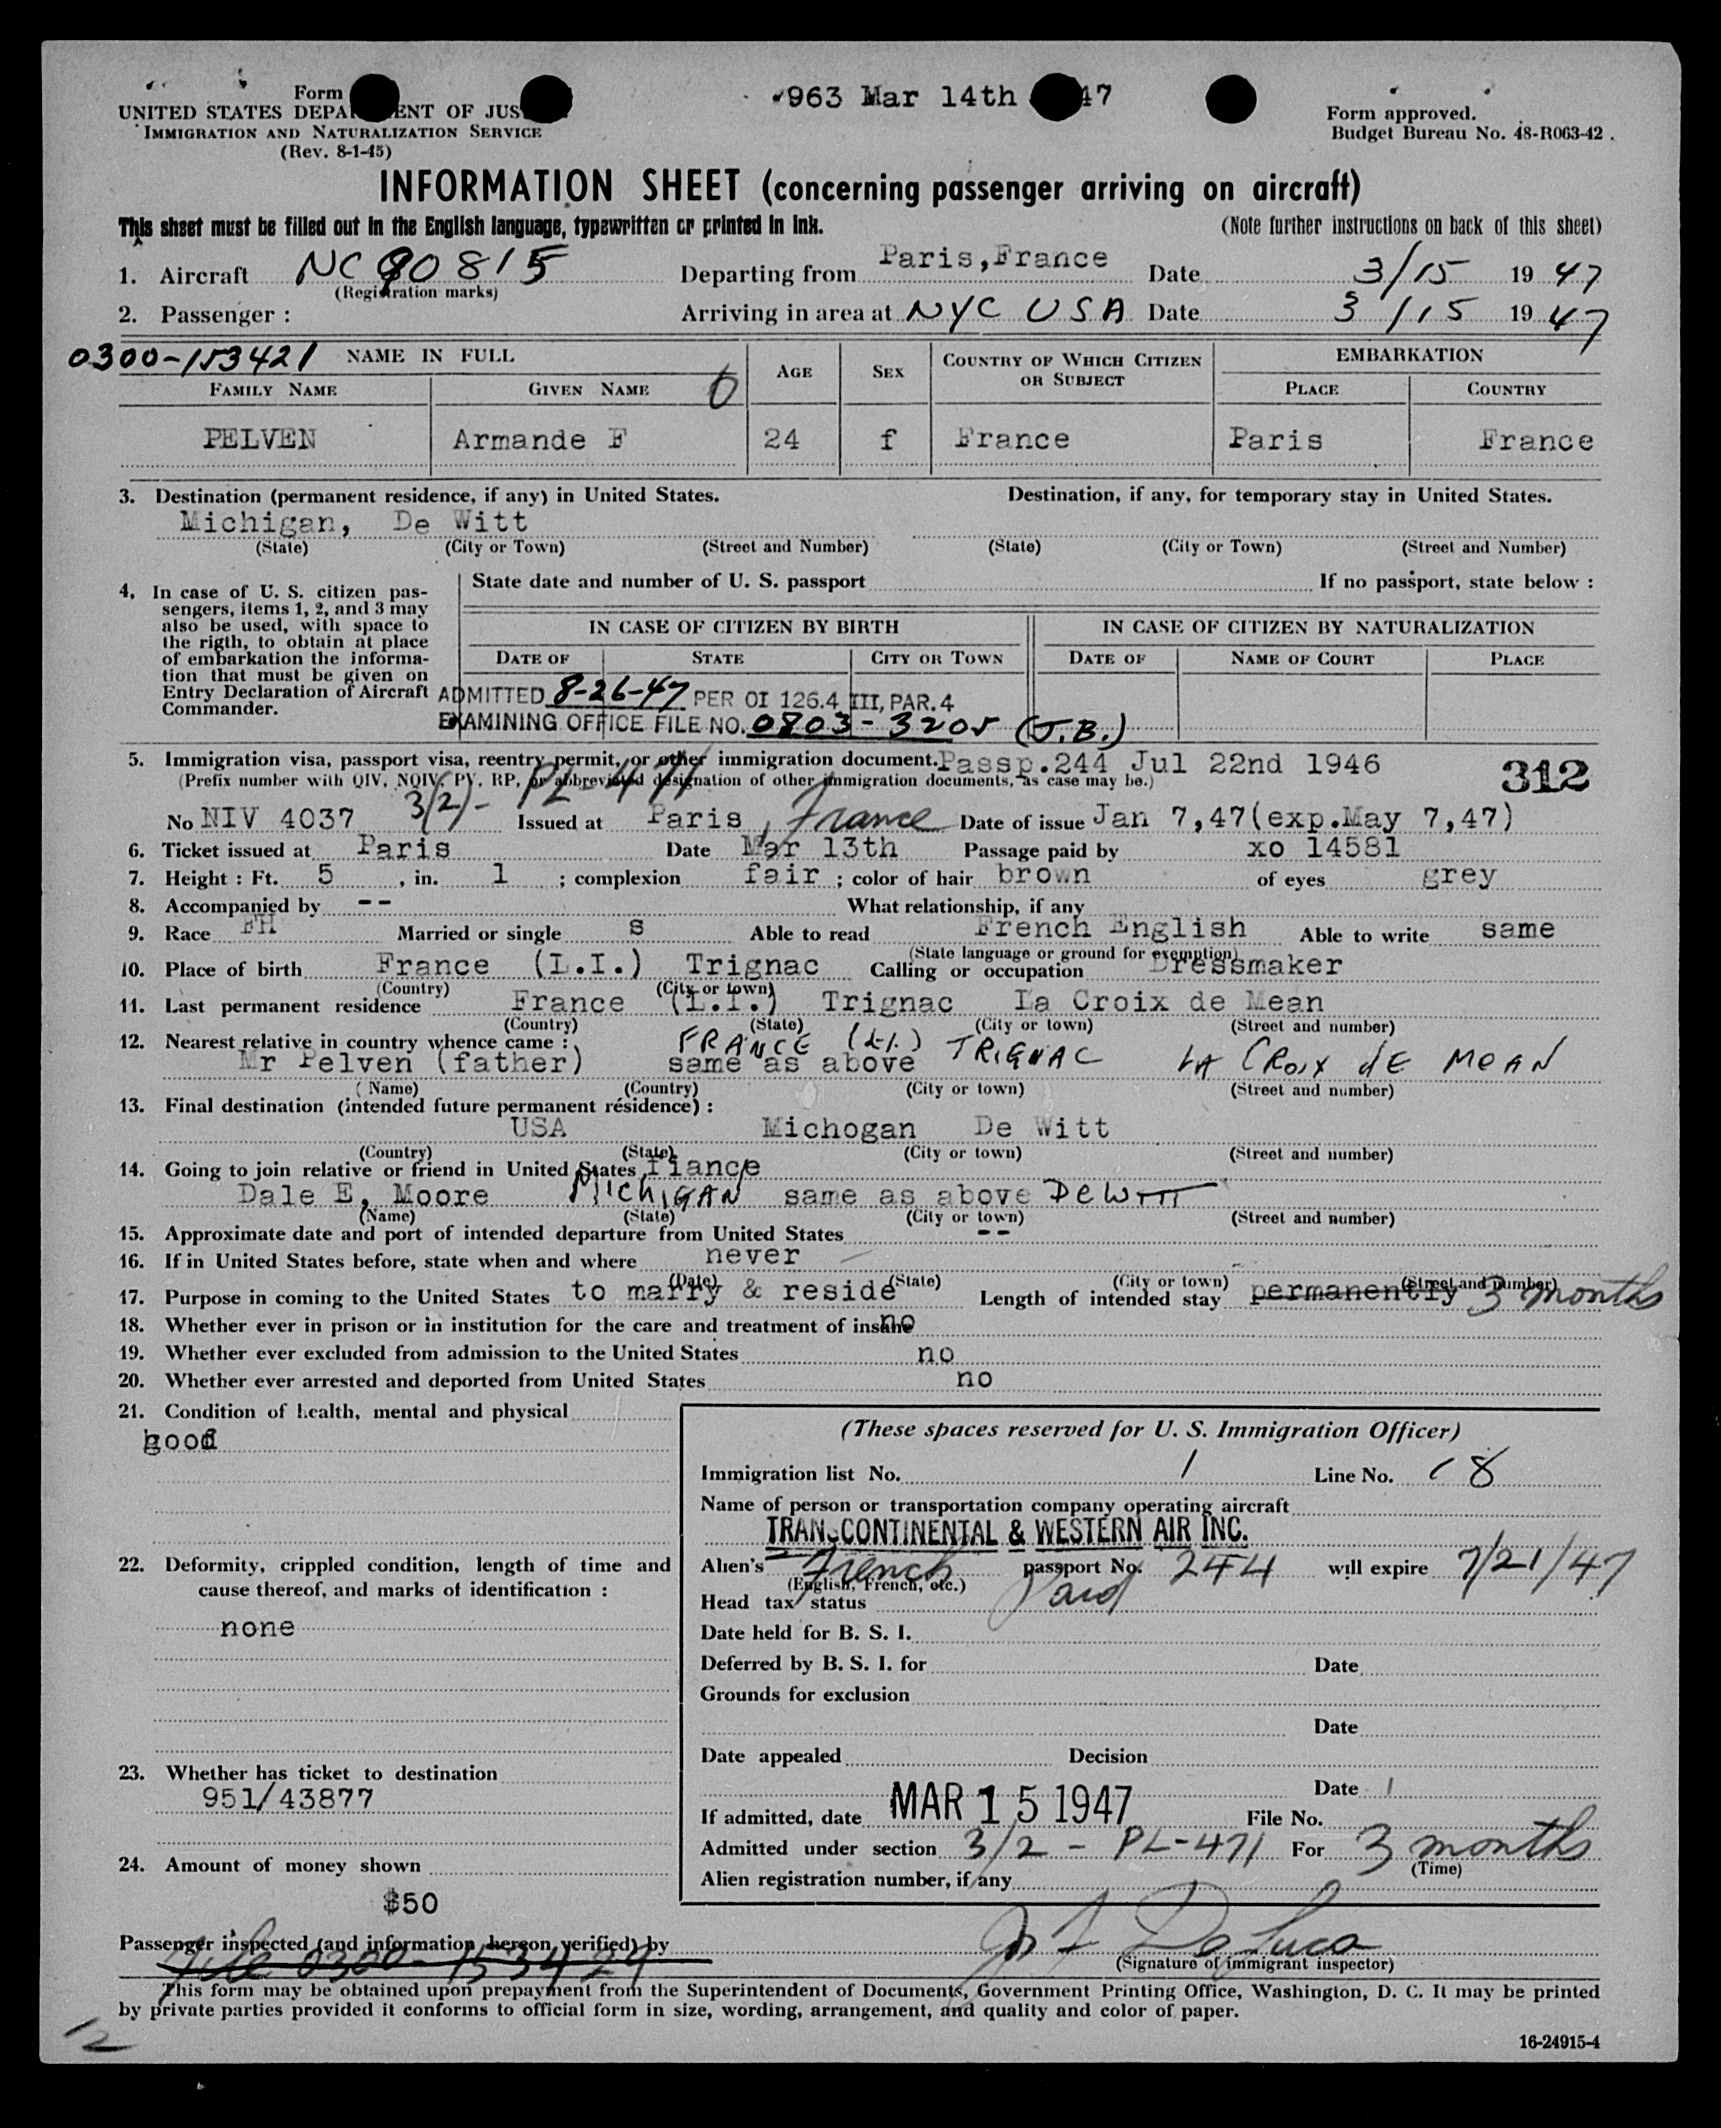 Form
963 Mar 14th 47
UNITED STATES DEPA ENT OF JUS
IMMIGRATION AND NATURALIZATION SERVICE
(Rev. 8-1-45)
Form approved.
Budget Bureau No. 48-R063-42.
INFORMATION SHEET (concerning passenger arriving on aircraft)
This sheet must be filled out in the English language, typewritten or printed in ink.
(Note further instructions on back of this sheet)
1. Aircraft NC 90815 Departing from Paris,France Date 3/15 19 47
(Registration marks)
2. Passenger : Arriving in area at NYC USA Date 3/15 19 47
0300-153421 NAME IN FULL AGE SEX COUNTRY OF WHICH CITIZEN OR SUBJECT EMBARKATION
FAMILY NAME GIVEN NAME PLACE COUNTRY
PELVEN Armande F 24 f France Paris France
3. Destination (permanent residence, if any) in United States. Destination, if any, for temporary stay in United States.
Michigan, De Witt
(State) (City or Town) (Street and Number) (State) (City or Town) (Street and Number)
4, In case of U. S. citizen pas-
sengers, items 1, 2, and 3 may
also be used, with space to
the rigth, to obtain at place
of embarkation the informa-
tion that must be given on
Entry Declaration of Aircraft
Commander.
State date and number of U. S. passport If no passport, state below :
IN CASE OF CITIZEN BY BIRTH IN CASE OF CITIZEN BY NATURALIZATION
DATE OF STATE CITY OR TOWN DATE OF NAME OF COURT PLACE
ADMITTED 8-26-47 PER OI 126.4 III, PAR. 4
EXAMINING OFFICE FILE NO. 0803-3205 (J.B.)
5. Immigration visa, passport visa, reentry permit, or other immigration document. Passp.244 Jul 22nd 1946
(Prefix number with QIV, NQIV, PV, RP, or abbreviated designation of other immigration documents, as case may be.) 312
3/2)- PL-471
No NIV 4037 Issued at Paris, France Date of issue Jan 7,47(exp.May 7,47)
6. Ticket issued at Paris Date Mar 13th Passage paid by xo 14581
7. Height : Ft. 5 , in. 1 ; complexion fair ; color of hair brown of eyes grey
8. Accompanied by -- What relationship, if any
9. Race FH Married or single s Able to read French English Able to write same
(State language or ground for exemption)
10. Place of birth France (L.I.) Trignac Calling or occupation Dressmaker
(Country) (City or town)
11. Last permanent residence France (L.I.) Trignac La Croix de Mean
(Country) (State) (City or town) (Street and number)
12. Nearest relative in country whence came : FRANCE (L.I.) TRIGNAC LA CROIX dE MEAN
Mr Pelven (father) same as above
(Name) (Country) (City or town) (Street and number)
13. Final destination (intended future permanent résidence) :
USA Michogan De Witt
(Country) (State) (City or town) (Street and number)
14. Going to join relative or friend in United States fiance
Dale E, Moore MICHIGAN same as above DeWITT
(Name) (State) (City or town) (Street and number)
15. Approximate date and port of intended departure from United States --
16. If in United States before, state when and where never
(Date) (State) (City or town) (Street and number)
17. Purpose in coming to the United States to marry & reside Length of intended stay permanently 3 months
18. Whether ever in prison or in institution for the care and treatment of insane no
19. Whether ever excluded from admission to the United States no
20. Whether ever arrested and deported from United States no
21. Condition of health, mental and physical
good
22. Deformity, crippled condition, length of time and
cause thereof, and marks of identification :
none
23. Whether has ticket to destination
951/43877
24. Amount of money shown
$50
(These spaces reserved for U. S. Immigration Officer)
Immigration list No. 1 Line No. 18
Name of person or transportation company operating aircraft
TRANSCONTINENTAL & WESTERN AIR INC.
Alien's French passport No. 244 will expire 7/21/47
(English, French, etc.)
Head tax status Paid
Date held for B. S. I.
Deferred by B. S. I. for Date
Grounds for exclusion
Date
Date appealed Decision
Date
If admitted, date MAR 15 1947 File No.
Admitted under section 3/2 - PL-471 For 3 months
(Time)
Alien registration number, if any
Passenger inspected (and information hereon verified) by
File 0300-153429
(Signature of immigrant inspector)
This form may be obtained upon prepayment from the Superintendent of Documents, Government Printing Office, Washington, D. C. It may be printed
by private parties provided it conforms to official form in size, wording, arrangement, and quality and color of paper.
12
16-24915-4